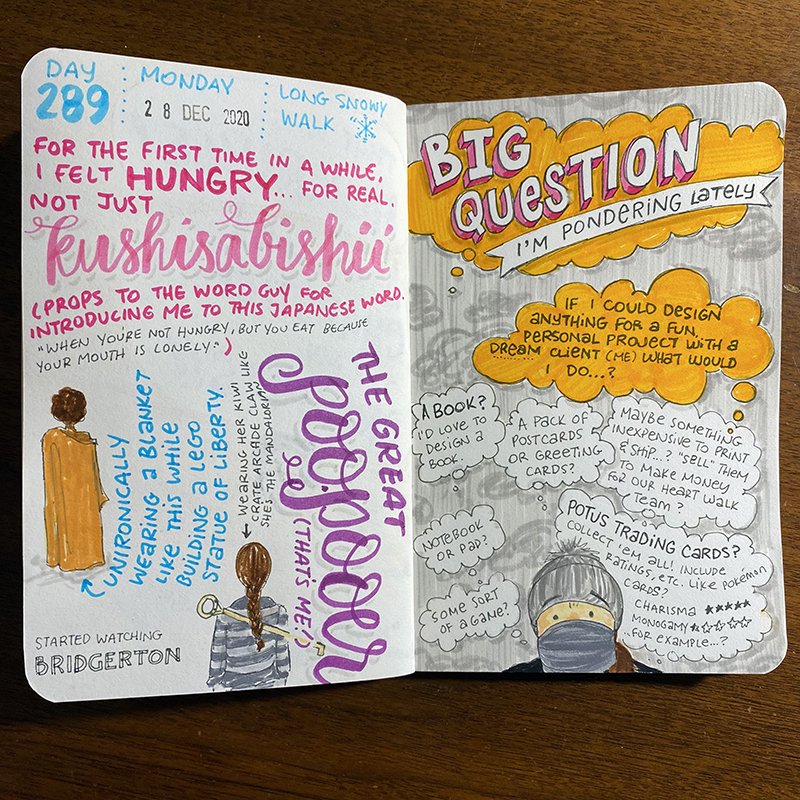 DAY
289
MONDAY
28 DEC 2020
LONG SNOWY
WALK
FOR THE FIRST TIME IN A WHILE,
I FELT HUNGRY... FOR REAL.
NOT JUST
kushisabishii
(PROPS TO THE WORD GUY FOR
INTRODUCING ME TO THIS JAPANESE WORD.
"WHEN YOU'RE NOT HUNGRY, BUT YOU EAT BECAUSE
YOUR MOUTH IS LONELY.")
UNIRONICALLY
WEARING A BLANKET
LIKE THIS WHILE
BUILDING A LEGO
STATUE OF LIBERTY.
← WEARING HER KIWI
CRATE ARCADE CLAW LIKE
SHE'S THE MANDALORIAN
THE GREAT
(THAT'S ME!)
STARTED WATCHING
BRIDGERTON
BIG
QUESTION
I'M PONDERING LATELY
IF I COULD DESIGN
ANYTHING FOR A FUN,
PERSONAL PROJECT WITH A
DREAM CLIENT (ME) WHAT WOULD
I DO...?
A BOOK?
I'D LOVE TO
DESIGN A
BOOK
A PACK OF
POSTCARDS
OR GREETING
CARDS?
MAYBE SOMETHING
INEXPENSIVE TO PRINT
& SHIP..? "SELL" THEM
TO MAKE MONEY
FOR OUR HEART WALK
TEAM?
NOTEBOOK
OR PAD?
SOME SORT
OF A GAME?
POTUS TRADING CARDS?
COLLECT 'EM ALL! INCLUDE
RATINGS, ETC. LIKE POKÉMON
CARDS?
CHARISMA ★★★★★
MONOGAMY ★☆☆☆☆
..FOR EXAMPLE...?